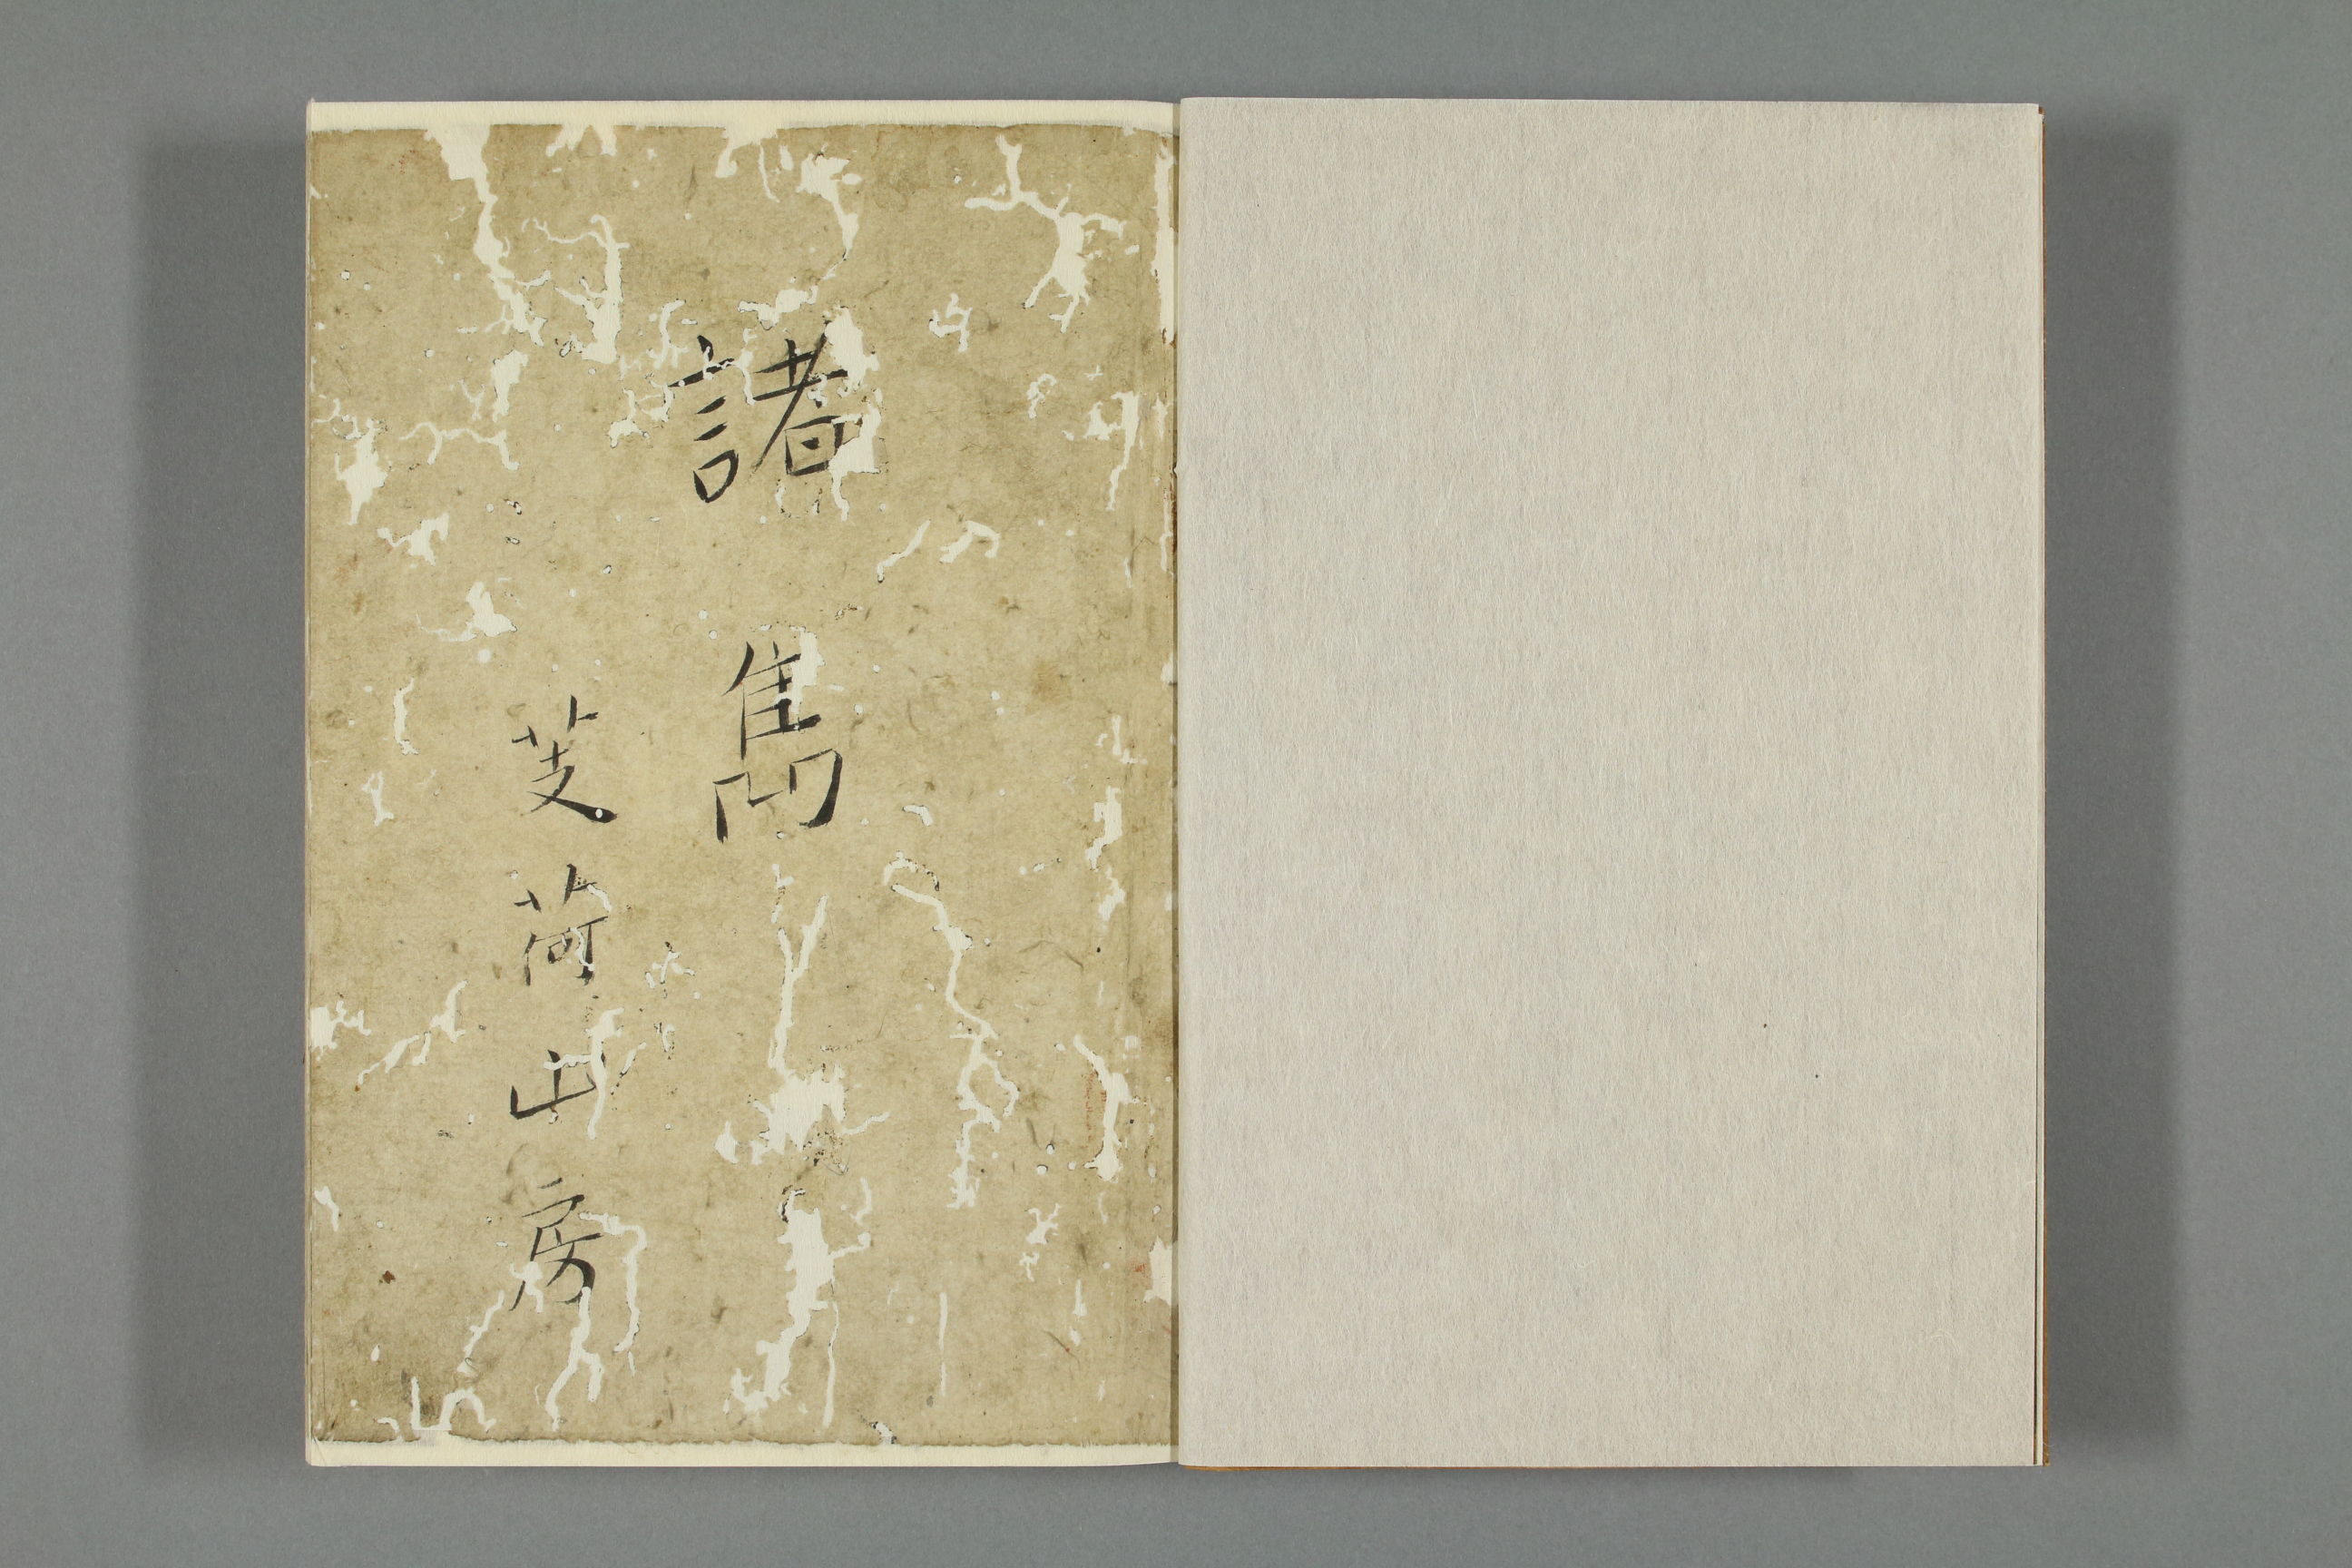 諸雋
芝荷山房